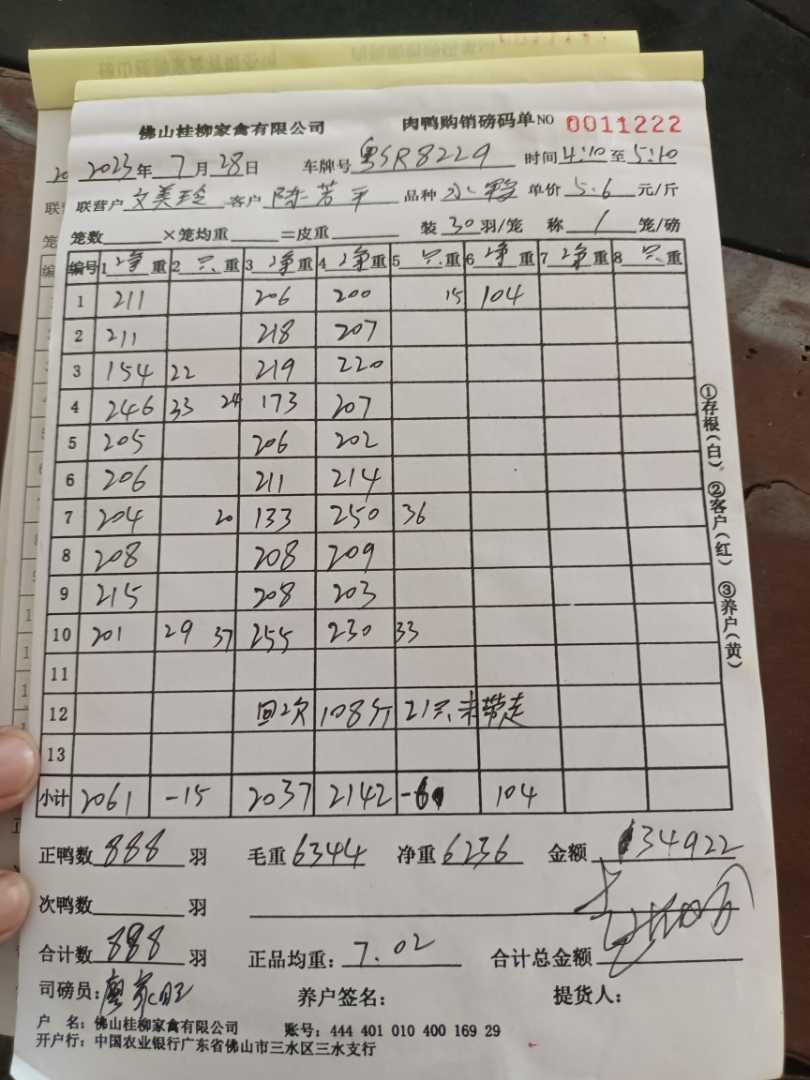 佛山桂柳家禽有限公司 肉鸭购销磅码单 NO 0011222
2023年 7月28日 车牌号 粤SR8229 时间 4:10 至 5:10
联营户 文美玲 客户 陈芳平 品种 水鸭 单价 5.6 元/斤
笼数 ×笼均重 =皮重 装 30 羽/笼 称 1 笼/磅
编号 1 净重 2 只重 3 净重 4 净重 5 只重 6 净重 7 净重 8 只重
1 211 206 200 15 104
2 211 218 207
3 154 22 219 220
4 246 33 24 173 207
5 205 206 202
6 206 211 214
7 204 20 133 250 36
8 208 208 209
9 215 208 203
10 201 29 37 255 230 33
11
12 回次 108斤 21只 未带走
13
小计 2061 -15 2037 2142 104
正鸭数 888 羽 毛重 6344 净重 6236 金额 34922
次鸭数 羽
合计数 888 羽 正品均重: 7.02 合计总金额
司磅员: 养户签名: 提货人:
户 名: 佛山桂柳家禽有限公司 账号: 444 401 010 400 169 29
开户行: 中国农业银行广东省佛山市三水区三水支行
①存根(白) ②客户(红) ③养户(黄)